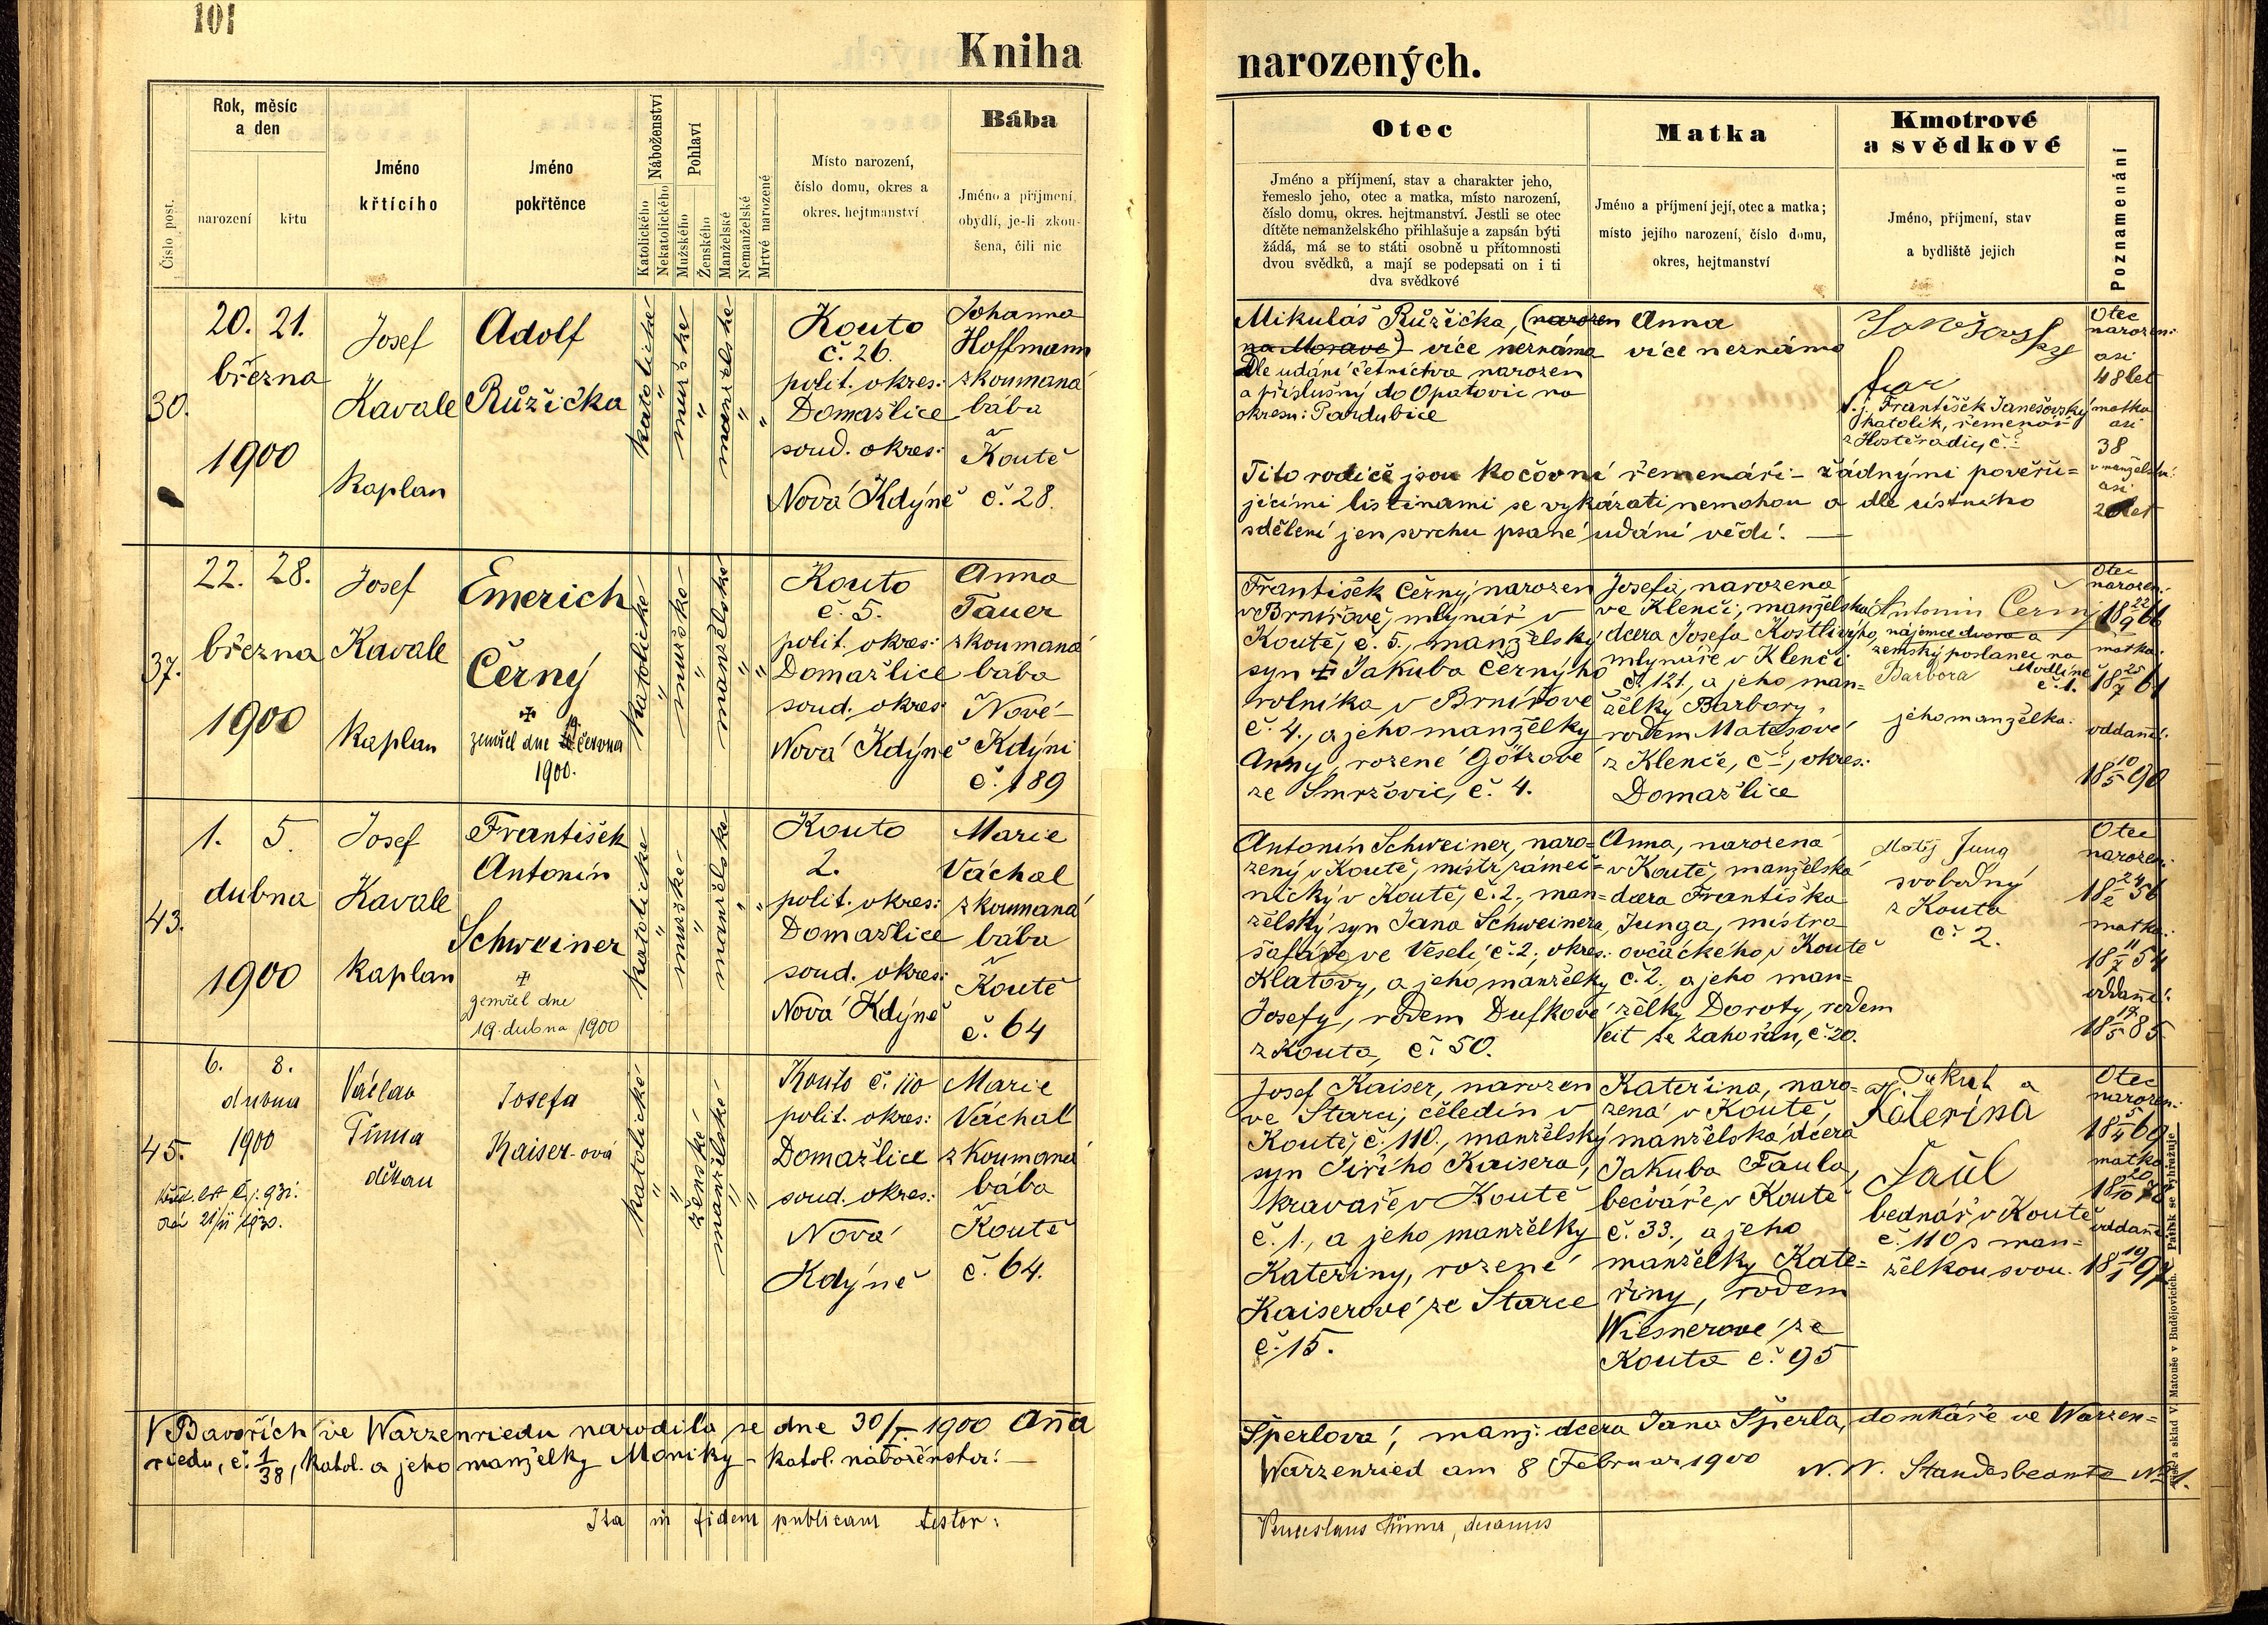 101
Kniha
narozených.
Číslo post.
Rok, měsíc
a den
narození
křtu
Jméno
křtícího
Jméno
pokřtěnce
Náboženství
Katolického
Nekatolického
Pohlaví
Mužského
Ženského
Manželské
Nemanželské
Mrtvě narozené
Místo narození,
číslo domu, okres a
okres. hejtmanství
Bába
Jméno a příjmení,
obydlí, je-li zkou-
šena, čili nic
Otec
Jméno a příjmení, stav a charakter jeho,
řemeslo jeho, otec a matka, místo narození,
číslo domu, okres. hejtmanství. Jestli se otec
dítěte nemanželského přihlašuje a zapsán býti
žádá, má se to státi osobně u přítomnosti
dvou svědků, a mají se podepsati on i ti
dva svědkové
Matka
Jméno a příjmení její, otec a matka;
místo jejího narození, číslo domu,
okres, hejtmanství
Kmotrové
a svědkové
Jméno, příjmení, stav
a bydliště jejich
Poznamenání
30.
20. 21.
března
1900
Josef
Kavale
kaplan
Adolf
Růžička
katolické
"
mužské
"
manželské
"
"
Kouto
č. 26.
polit. okres:
Domažlice
soud. okres:
Nová Kdýně
Johanna
Hoffmann
zkoumaná
bába
v
Koutě
č. 28.
Mikuláš Růžička, (narozen
na Moravě) více neznámo
Dle udání četnictva narozen
a příslušný do Opatovic na
okresu: Pardubice
Anna
více neznámo
t. j. František Janešovský
katolík, řemenář
z Hostěradic, č.
Otec
narozen:
asi
48 let
matka
asi
38
v manželství:
asi
20 let
Tito rodiče jsou kočovní řemenáři – žádnými pověřu=
jícími listinami se vykázati nemohou a dle ústního
sdělení jen svrchu psané udání vědí. —
37.
22. 28.
března
1900
Josef
Kavale
kaplan
Emerich
Černý
✠
zemřel dne 19. června
1900.
katolické
"
mužské
"
manželské
"
"
Kouto
č. 5.
polit. okres:
Domažlice
soud. okres:
Nová Kdýně
Anna
Tauer
zkoumaná
bába
v Nové-
Kdýni
č. 189
František Černý, narozen
v Brnířově, mlynář v
Koutě, č. 5., manželský
syn ✠ Jakuba Černýho
rolníka v Brnířově
č. 4., a jeho manželky
Anny, rozené Götzové
ze Smržovic, č. 4.
Josefa, narozena
ve Klenčí, manželská
dcera Josefa Kostlivýho,
mlynáře v Klenčí
č. 121, a jeho man=
želky Barbory,
rodem Matasové
z Klenče, č., okres:
Domažlice
Antonín Černý
nájemce dvora a
zemský poslanec na
Modlíně
č. 1.
Barbora
jeho manželka.
Otec
narozen:
18 22/9 66
matka:
18 25/7 61
oddaní:
18 10/5 90
43.
1. 5.
dubna
1900
Josef
Kavale
kaplan
František
Antonín
Schweiner
✠
zemřel dne
19. dubna 1900
katolické
"
mužské
"
manželské
"
"
Kouto
2.
polit. okres:
Domažlice
soud. okres:
Nová Kdýně
Marie
Váchal
zkoumaná
bába
v
Koutě
č. 64
Antonín Schweiner, naro=
zený v Koutě, mistr zámeč=
nický v Koutě, č. 2., man=
želský syn Jana Schweinera,
šafáře ve Veselí, č. 2., okres:
Klatovy, a jeho manželky
Josefy, rodem Dufkové
z Kouta, č. 50.
Anna, narozená
v Koutě, manželská
dcera Františka
Junga, mistra
ovčáckého v Koutě
č. 2. a jeho man=
želky Doroty, rodem
Veit ze Zahořan, č. 20.
Matěj Jung
svobodný
z Kouta
č. 2.
Otec
narozen:
18 24/2 56
matka:
18 11/7 54
oddaní:
18 17/5 85.
45.
6. 8.
dubna
1900
Václav
Tůma
děkan
Josefa
Kaiser-ová
katolické
"
"
ženské
manželské
"
"
Kouto č. 110
polit. okres:
Domažlice
soud. okres:
Nová
Kdýně
Marie
Váchal
zkoumaná
bába
v
Koutě
č. 64.
Josef Kaiser, narozen
ve Starci, čeledín v
Koutě, č. 110., manželský
syn Jiřího Kaisera,
kravaře v Koutě
č. 1., a jeho manželky
Kateřiny, rozené
Kaiserové ze Starce
č. 15.
Kateřina, naro=
zená v Koutě,
manželská dcera
Jakuba Faula,
bečváře v Koutě
č. 33., a jeho
manželky Kate=
řiny, rodem
Wiesnerové ze
Kouta č. 95
Jakub a
Kateřina
Faul
bednář v Koutě
č. 110 s man=
želkou svou.
Otec
narozen:
18 5/4 69
matka
18 20/10 78
oddaní
18 19/1 97
V Bavořích ve Warzenriedu narodila se dne 30/I. 1900 Anna
Šperlova, manž: dcera Jana Šperla, domkáře ve Warzen=
riedu, č. 1/38, katol. a jeho manželky Moniky – katol. náboženství. —
Warzenried am 8 Februar 1900 N. N. Standesbeamte No 1.
Ita in fidem publicam testor:
Venceslaus Tůma, decanus
Tisk a sklad V. Matouše v Budějovicích. Patisk se vyhražuje